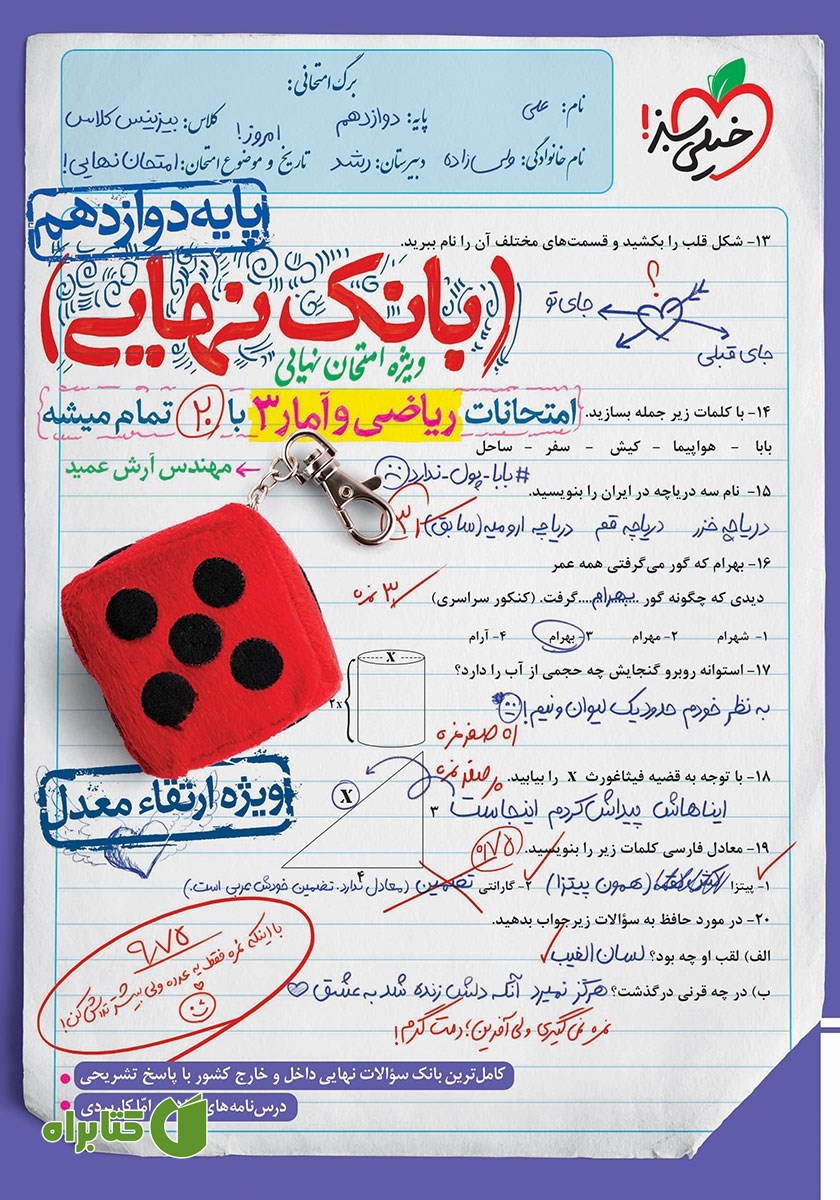 برگ امتحانی:
نام: علی
پایه: دوازدهم
کلاس: بیزینس کلاس
نام خانوادگی: ولی زاده
دبیرستان: رشد
تاریخ و موضوع امتحان: امتحان نهایی!
امروز!
خیلی سبز!
پایه دوازدهم
۱۳- شکل قلب را بکشید و قسمت‌های مختلف آن را نام ببرید.
(بانک نهایی)
ویژه امتحان نهایی
؟
جای تو
جای قبلی
امتحانات ریاضی و آمار ۳ با ۲۰ تمام میشه
مهندس آرش عمید
۱۴- با کلمات زیر جمله بسازید.
بابا - هواپیما - کیش - سفر - ساحل
#بابا-پول-ندارد
۱۵- نام سه دریاچه در ایران را بنویسید.
دریاچه خزر دریاچه قم دریاچه ارومیه (سابق)
۱۶- بهرام که گور می‌گرفتی همه عمر
دیدی که چگونه گور ....بهرام.... گرفت. (کنکور سراسری)
۳ نمره
۱- شهرام ۲- مهرام ۳- بهرام ۴- آرام
۱۷- استوانه روبرو گنجایش چه حجمی از آب را دارد؟
X
۲x
به نظر خودم حدود یک لیوان و نیم!
اه صفر نمره
۱۸- با توجه به قضیه فیثاغورث X را بیابید.
صفر نمره
X
۳
۴
ایناهاش پیداش کردم اینجاست
ویژه ارتقاء معدل
۱۹- معادل فارسی کلمات زیر را بنویسید.
۰/۷۵
۱- پیتزا (همون پیتزا) ۲- گارانتی تضمین (معادل ندارد. تضمین خودش عربی است.)
۲۰- در مورد حافظ به سؤالات زیر جواب بدهید.
الف) لقب او چه بود؟ لسان الغیب
ب) در چه قرنی درگذشت؟ هرگز نمیرد آنکه دلش زنده شد به عشق
نمره نمی‌گیری ولی آفرین؛ دمت گرم!
۹/۷۵
با اینکه نمره فقط یه عدده ولی بیشتر تلاش کن!
کامل‌ترین بانک سؤالات نهایی داخل و خارج کشور با پاسخ تشریحی
درس‌نامه‌های اما کاربردی
کتابراه